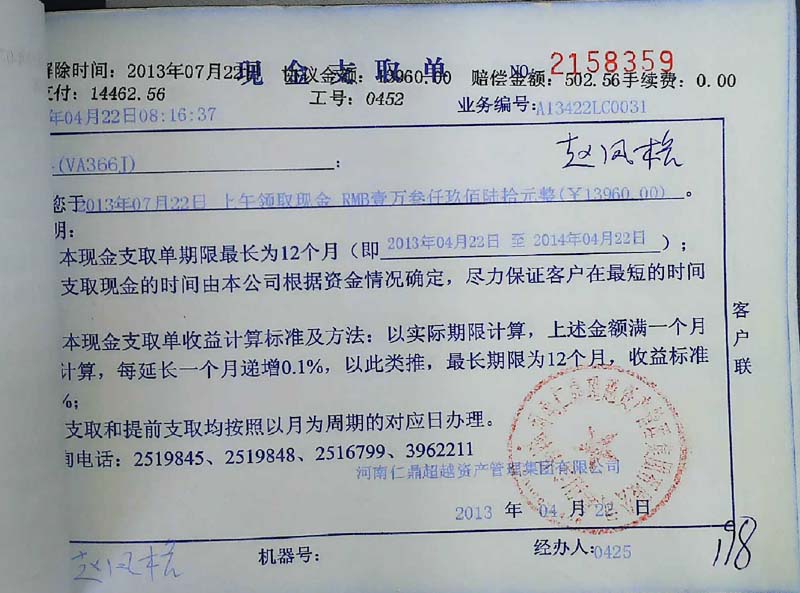 现金支取单 NO 2158359
解除时间：2013年07月22日 协议金额：13960.00 赔偿金额：502.56手续费：0.00
支付：14462.56 工号：0452 业务编号：A13422LC0031
年04月22日08:16:37
(VA366J)：
赵凤格
您于2013年07月22日 上午领取现金 RMB壹万叁仟玖佰陆拾元整(￥13960.00)。
明：
本现金支取单期限最长为12个月（即2013年04月22日 至 2014年04月22日）；
支取现金的时间由本公司根据资金情况确定，尽力保证客户在最短的时间
本现金支取单收益计算标准及方法：以实际期限计算，上述金额满一个月
计算，每延长一个月递增0.1%，以此类推，最长期限为12个月，收益标准
%；
支取和提前支取均按照以月为周期的对应日办理。
询电话：2519845、2519848、2516799、3962211
河南仁鼎超越资产管理集团有限公司
2013 年 04 月 22 日
客户联
赵凤格 机器号： 经办人：0425
198